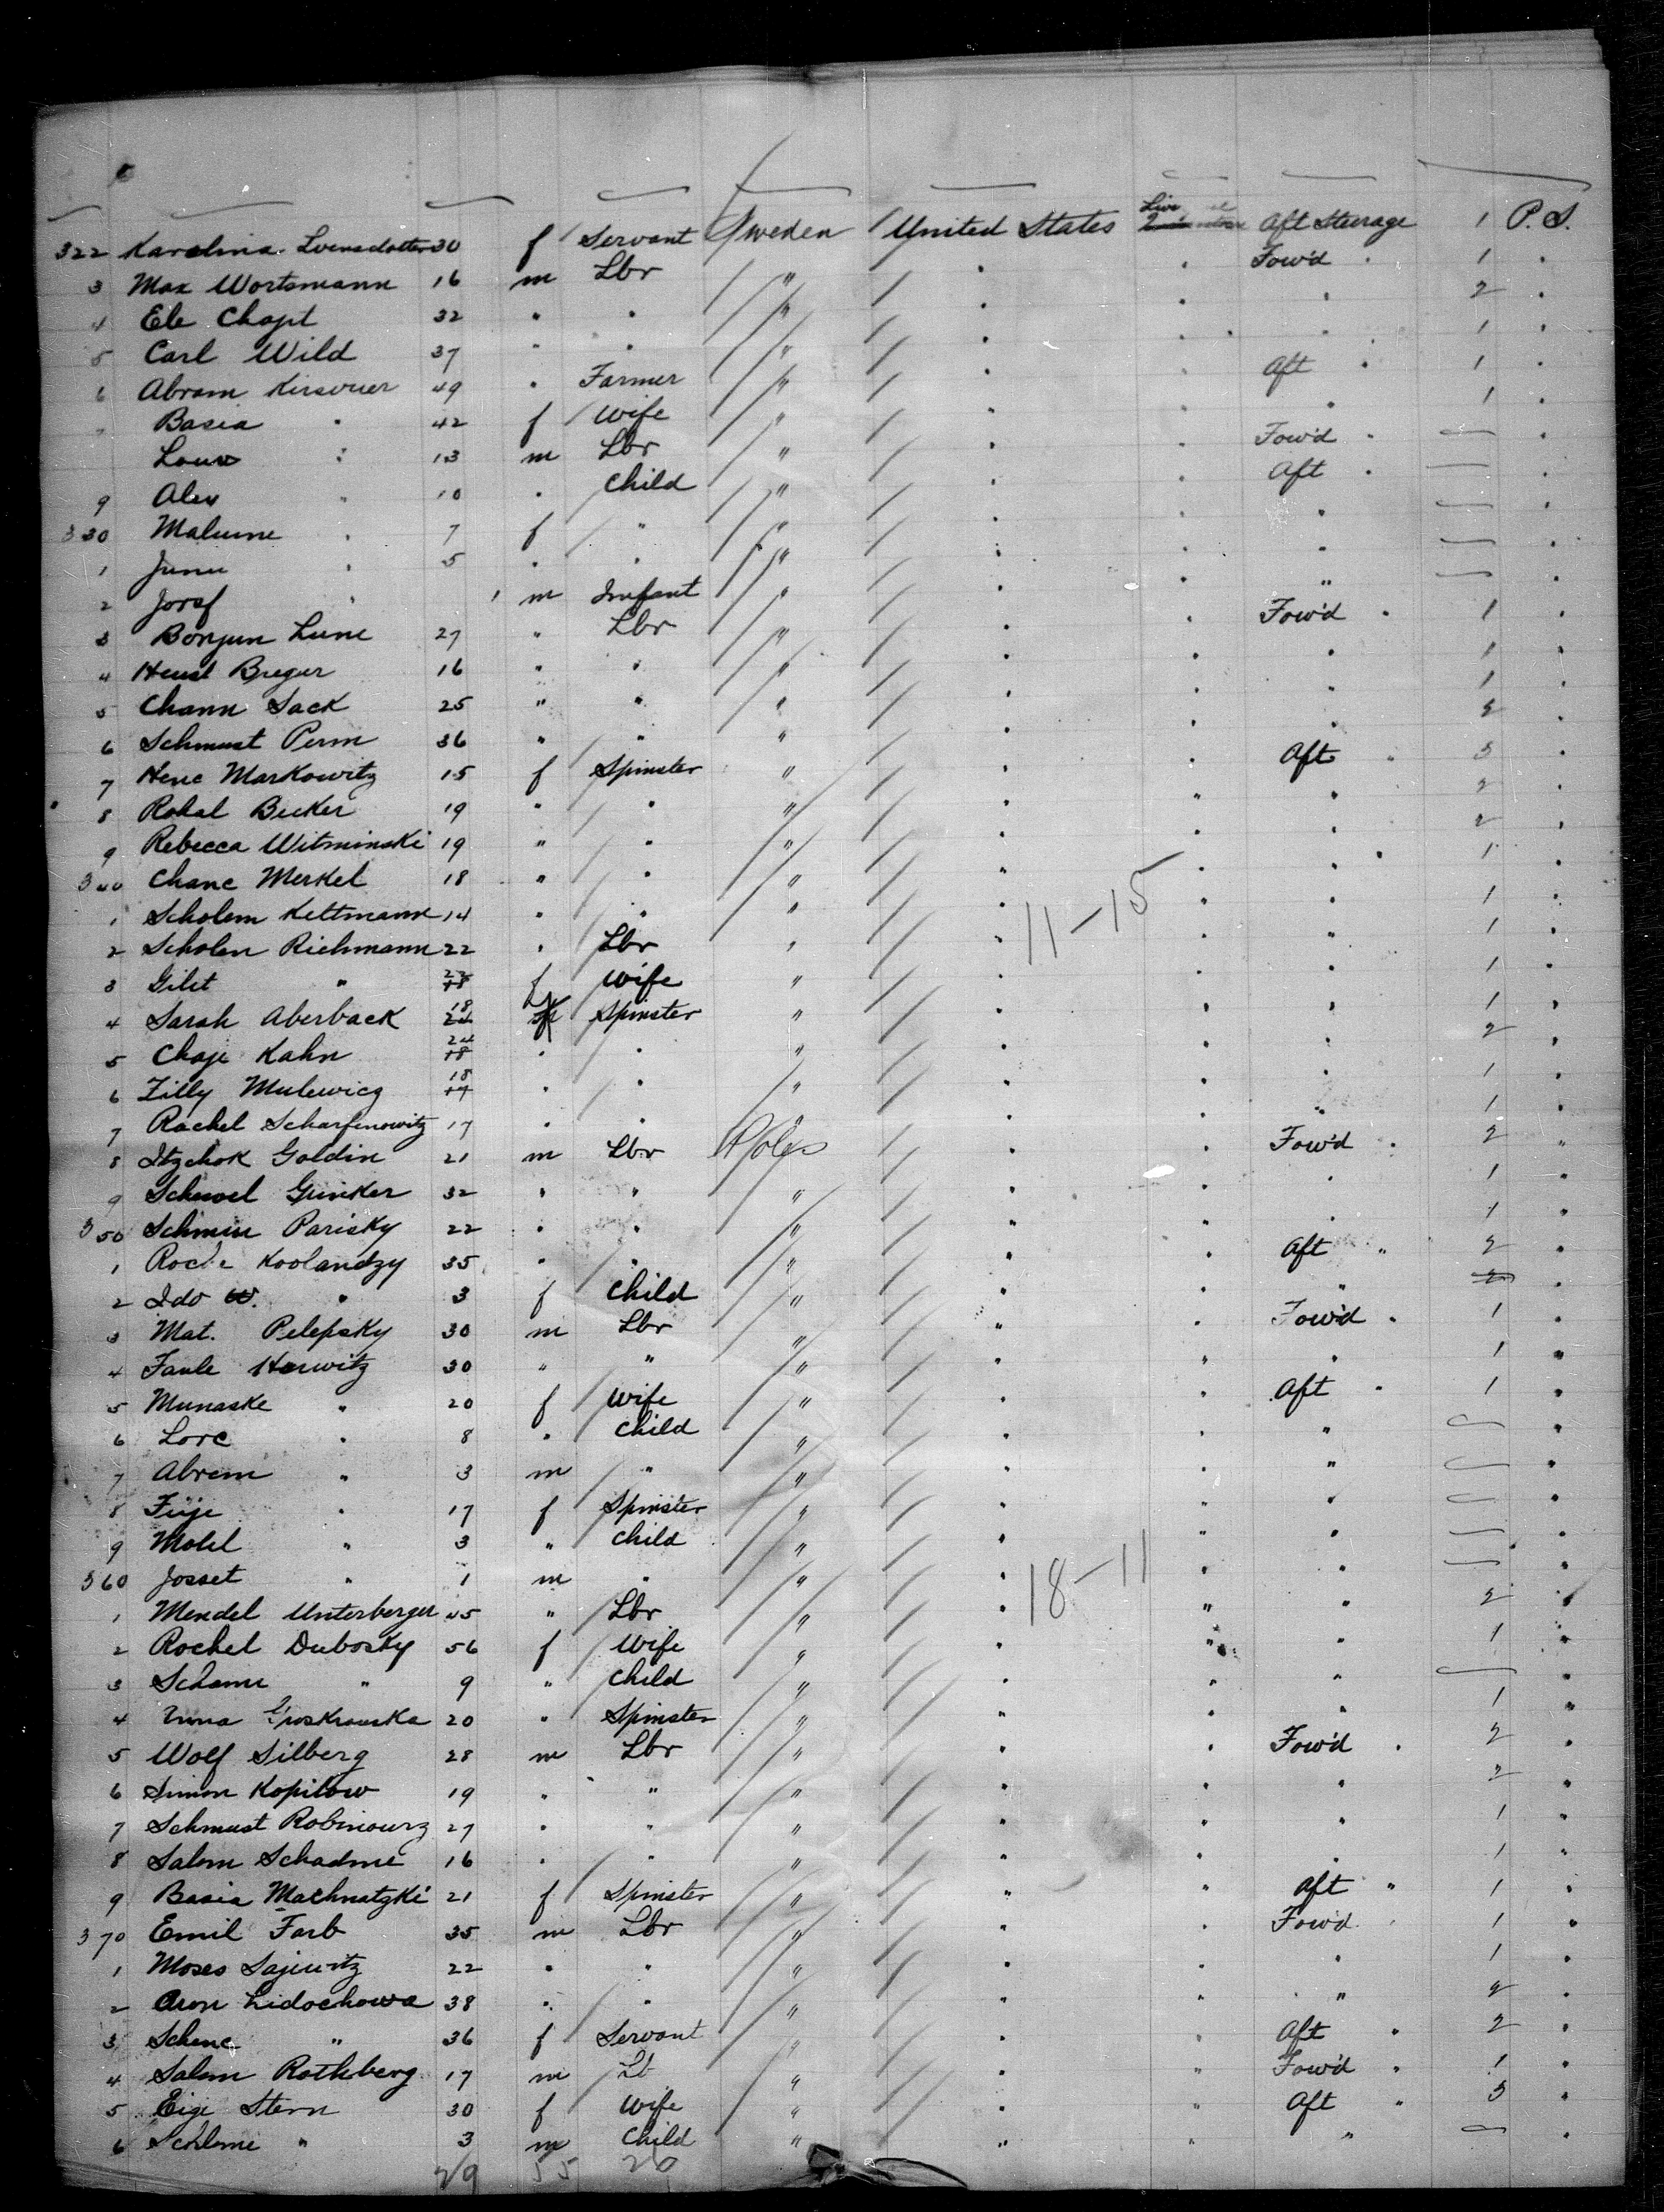 322 Karolina Svensdotter 30 f Servant Sweden United States Aft Steerage 1 P.S.
3 Max Wortsmann 16 m Lbr " " " Fow'd " 1 "
4 Ele Chapt 32 " " " " " " 2 "
5 Carl Wild 37 " " " " " " 1 "
6 Abram Kirsower 49 " Farmer " " " Aft " 1 "
7 Basia " 42 f Wife " " " " 1 "
" 13 m Lbr " " " Fow'd " — "
9 Alex " 10 " Child " " " Aft " — "
330 Malume " 7 f " " " " " — "
1 " 5 " " " " " " — "
2 Josef " 1 m Infant " " " " — "
3 Bonjun Lune 27 " Lbr " " " Fow'd " 1 "
4 Breger 16 " " " " " " 1 "
5 Chann Sack 25 " " " " " " 1 "
6 Schmust Perm 36 " " " " " " 2 "
7 Hene Markowitz 15 f Spinster " " " Aft " 3 "
8 Rokal Becker 19 " " " " " " 2 "
9 Rebecca Witminski 19 " " " " " " 2 "
340 Chane Merkel 18 " " " " " " 1 "
1 Scholem Keltmann 14 " " " " " " 1 "
11-15
2 Scholen Richmann 22 " Lbr " " " " 1 "
3 Gilet " 22 f Wife " " " " 1 "
4 Sarah Aberback 18 f Spinster " " " " 1 "
5 Chaje Kahn 24 " " " " " " 2 "
6 Zilly Mulewicz 18 " " " " " " 1 "
7 Rachel Scharfenowitz 17 " " " " " 1 "
8 Itzchok Goldin 21 m Lbr Poles " " Fow'd " 2 "
9 Schwoel Gunker 32 " " " " " " 1 "
350 Schmin Parisky 22 " " " " " " 1 "
1 Roche Koolandzy 35 " " " " " Aft " 2 "
2 Ido W. " 3 f Child " " " " "
3 Mat. Pelepsky 30 m Lbr " " " Fow'd " 1 "
4 Faule Horwitz 30 " " " " " " 1 "
5 Munaske " 20 f Wife " " " Aft " 1 "
6 Lore " 8 " Child " " " " — "
7 Abrem " 3 m " " " " " — "
8 Feije " 17 f Spinster " " " " — "
9 Mobel " 3 " Child " " " " — "
360 Josset " 1 m " " " " " — "
18-11
1 Mendel Unterberger 45 " Lbr " " " " 2 "
2 Rochel Dubosky 56 f Wife " " " " 1 "
3 Schame " 9 " Child " " " " — "
4 20 " Spinster " " " " 1 "
5 Wolf Silberg 28 m Lbr " " " Fow'd " 2 "
6 Simon Kopilow 19 " " " " " " 2 "
7 Schmust Robinourz 27 " " " " " " 1 "
8 Salom Schadme 16 " " " " " " 1 "
9 Basia Machnatzki 21 f Spinster " " " Aft " 1 "
370 Emil Farb 35 m Lbr " " " Fow'd " 1 "
1 Moses Sajewitz 22 " " " " " " 1 "
2 Aron Lidochowa 38 " " " " " " 2 "
3 Schene " 36 f Servant " " " Aft " 2 "
4 Salom Rothberg 17 m Lb " " " Fow'd " 1 "
5 Eige Stern 30 f Wife " " " Aft " 3 "
6 Schleme " 3 m Child " " " " — "
29 55 26